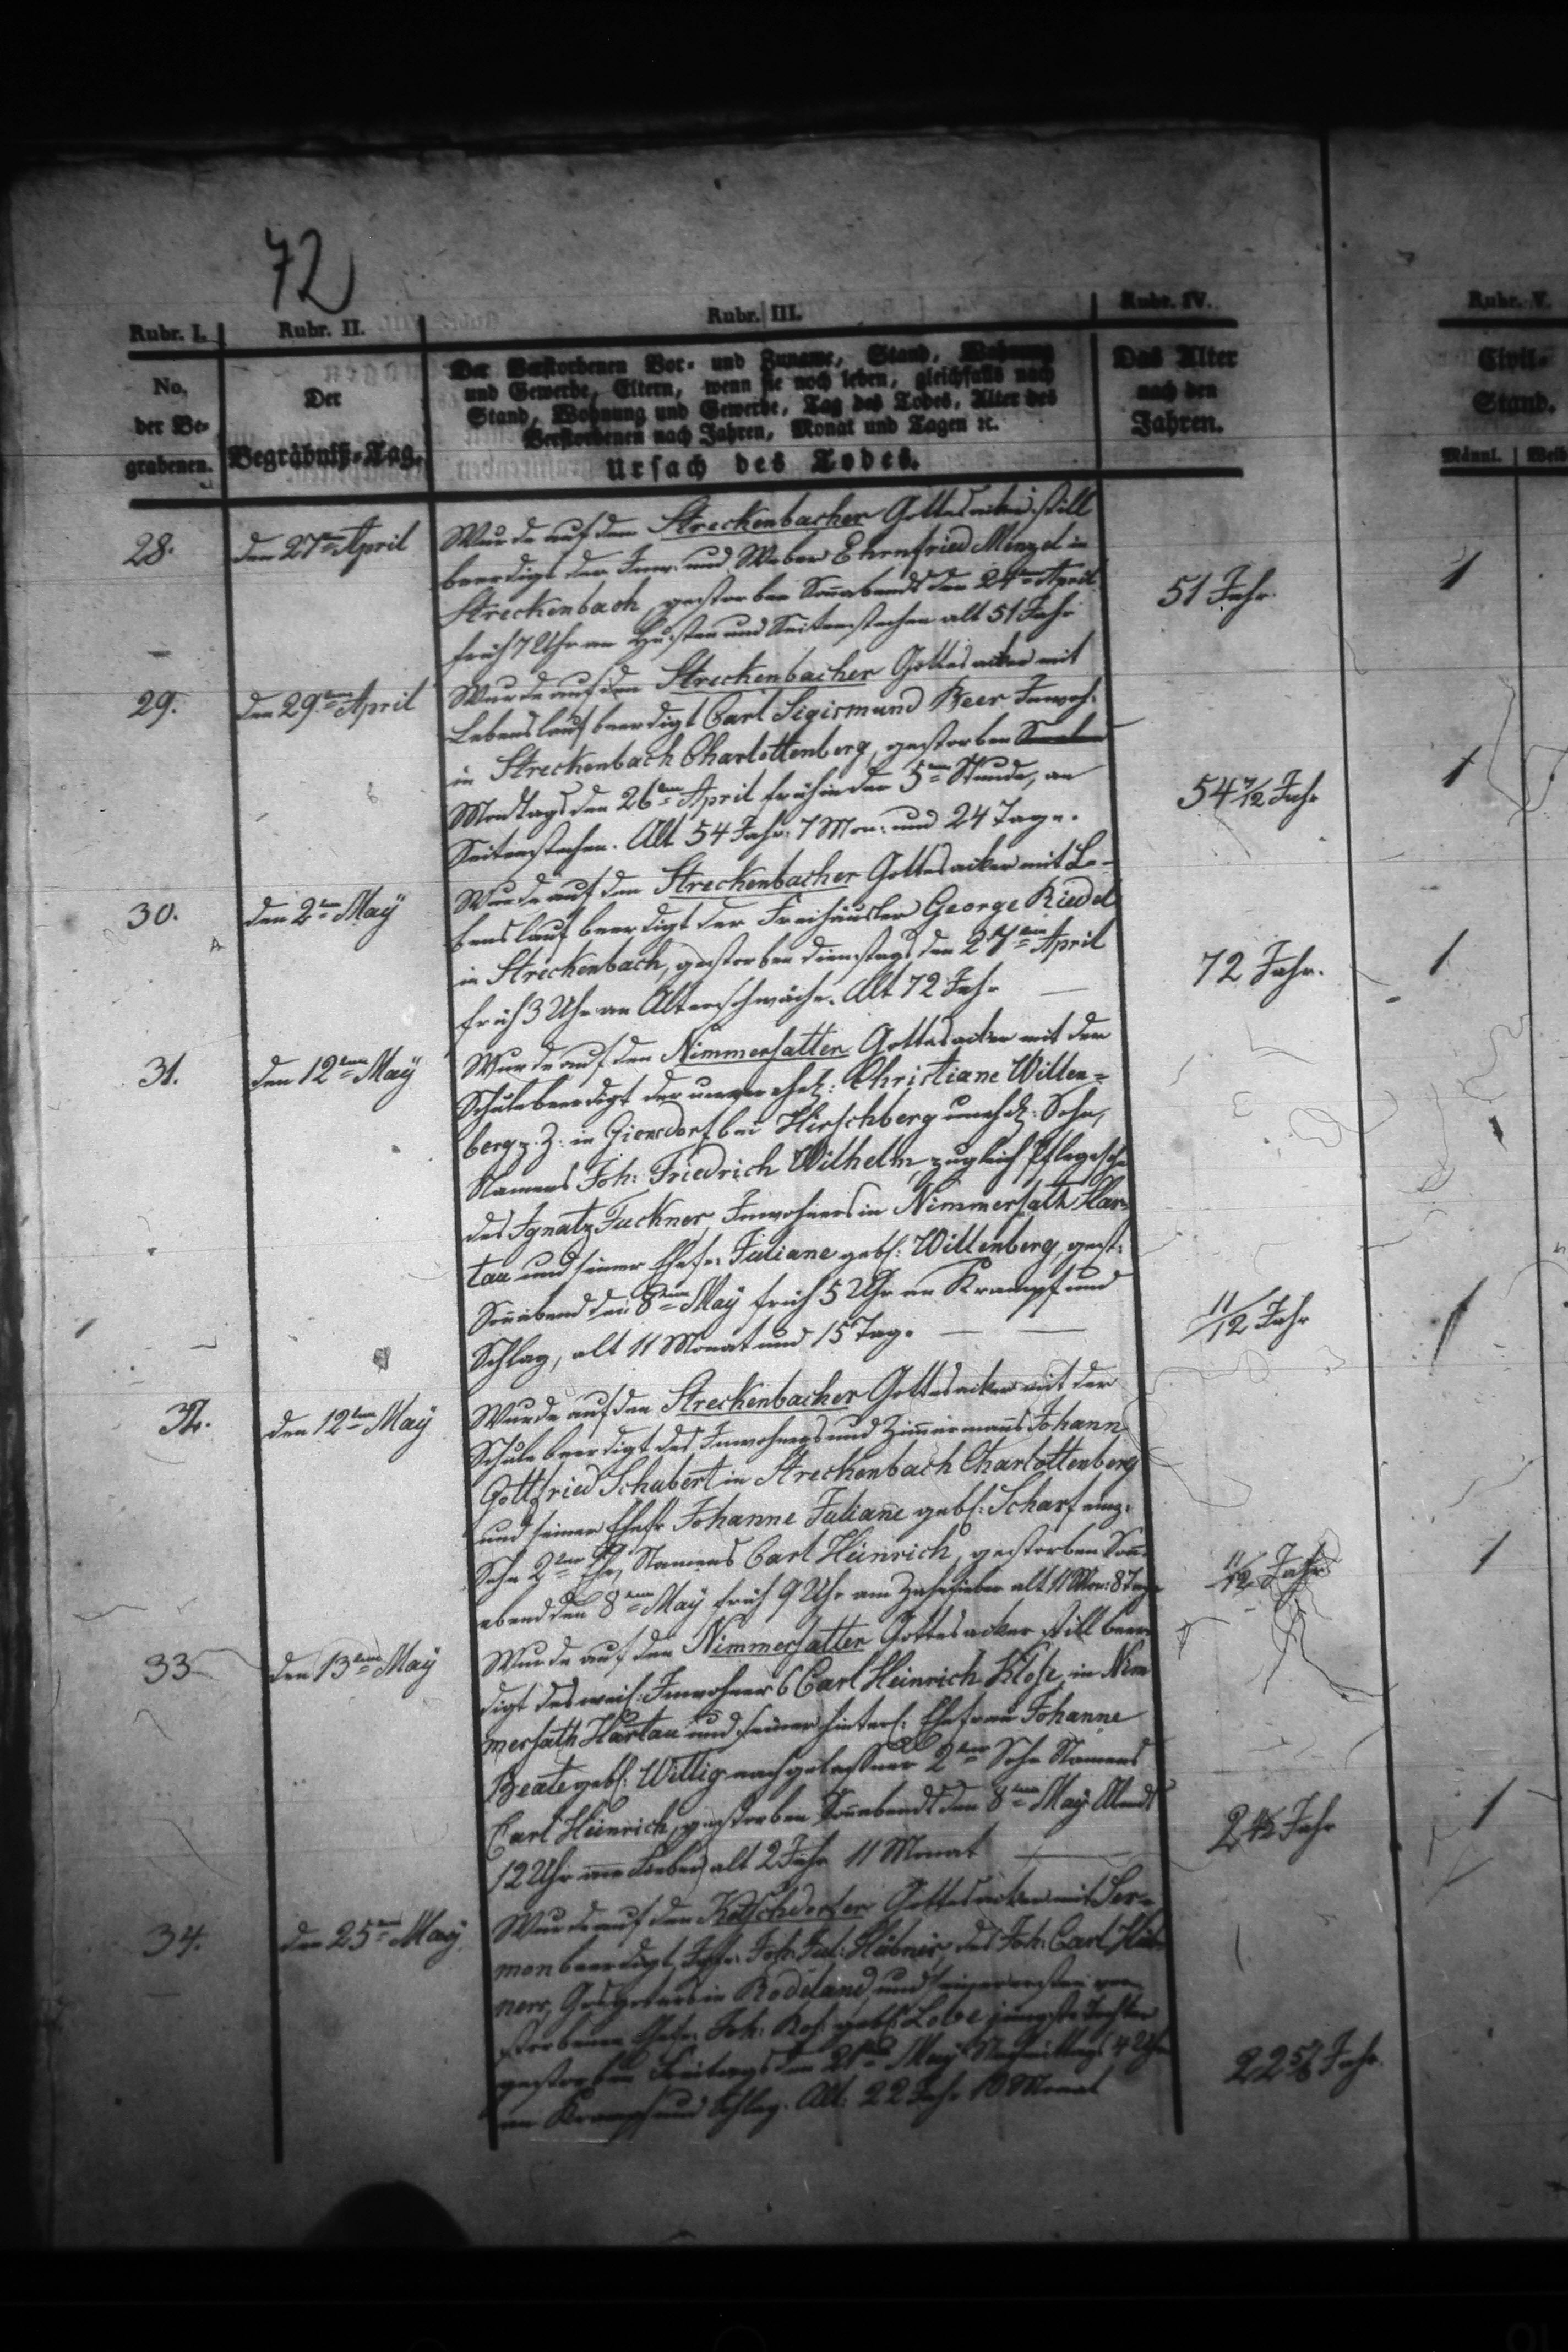 72
Rubr. I. Rubr. II. Rubr. III. Rubr. IV. Rubr. V.
No. der Be-grabenen.
Der Begräbniß-Tag.
Der Verstorbenen Vor- und Zuname, Stand, Wohnung
und Gewerbe, Eltern, wenn sie noch leben, gleichfalls nach
Stand, Wohnung und Gewerbe, Tag des Todes, Alter des
Verstorbenen nach Jahren, Monat und Tagen ꝛc.
Ursach des Todes.
Das Alter
nach den
Jahren.
Civil-
Stand.
Männl. Weib
28. den 27ten April
Wurde auf den Streckenbacher Gottesacker still
beerdigt der Inw. und Weber Ehrenfried Menzel in
Streckenbach, gestorben Sonnabends den 24ten April
früh 7 Uhr an Husten und Seitenstechen alt 51 Jahr
51 Jahr. 1
29. den 29ten April
Wurde auf den Streckenbacher Gottesacker mit
Lebenslauf beerdigt Carl Sigismund Beer Inwoh:
in Streckenbach Charlottenberg, gestorben
Montags den 26ten April früh in der 5ten Stunde, an
Seitenstechen. Alt 54 Jahr. 7 Mon: und 24 Tage.
54 7/12 Jahr 1
30. den 2ten Maÿ
Wurde auf den Streckenbacher Gottesacker mit Le-
benslauf beerdigt der Freihäusler George Riedel
in Streckenbach, gestorben Dienstags den 27ten April
früh 3 Uhr an Altersschwäche. Alt 72 Jahr
72 Jahr. 1
31. den 12ten Maÿ
Wurde auf den Nimmersatter Gottesacker mit der
Schule beerdigt der unverehel: Christiane Willen=
berg z. Z: in Giersdorf bei Hirschberg unehel: Sohn,
Namens Joh: Friedrich Wilhelm, zugleich Pflegesohn
des Ignatz Fuckner, Inwohners in Nimmersath Har-
tau und seiner Ehefr: Juliane geb: Willenberg, gest:
Sonnabend den 8ten Maÿ früh 5 Uhr an Krampf und
Schlag, alt 11 Monat und 15 Tage.
11/12 Jahr 1
32. den 12ten Maÿ
Wurde auf den Streckenbacher Gottesacker mit der
Schule beerdigt des Inwohners und Zimmermanns Johann
Gottfried Schubert in Streckenbach Charlottenberg
und seiner Ehefr Johanne Juliane geb: Scharf einz:
Sohn 2ter Ehe, Namens Carl Heinrich, gestorben Sonn-
abend den 8ten Maÿ früh 9 Uhr am Zahnfieber alt 11 Mon: 8 Tage
11/12 Jahr 1
33 den 13ten Maÿ
Wurde auf den Nimmersatter Gottesacker still beer-
digt des weil: Inwohners Carl Heinrich Klose, in Nim
mersath Hartau und seiner hinterl: Ehefrau Johanne
Beate geb: Willig nachgelassner 2ter Sohn Namens
Carl Heinrich, gestorben Sonnabends den 8ten Maÿ Abends
12 Uhr am Fieber, alt 2 Jahr 11 Monat
2 11/12 Jahr 1
34. den 25ten Maÿ
Wurde auf den Ketschdorfer Gottesacker mit Ser-
mon beerdigt Igfr. Joh: Jul: Hübner, des Joh: Carl Hüb-
ners, in Rodeland, und seiner ersten ver-
storbenen Ehefr: Joh: Ros: geb: Lobe jüngste Tochter
gestorben Freitags den 21ten Maÿ Nachmittags 4 Uhr
an Krampf und Schlag. Alt: 22 Jahr 10 Monat
22 5/6 Jahr.